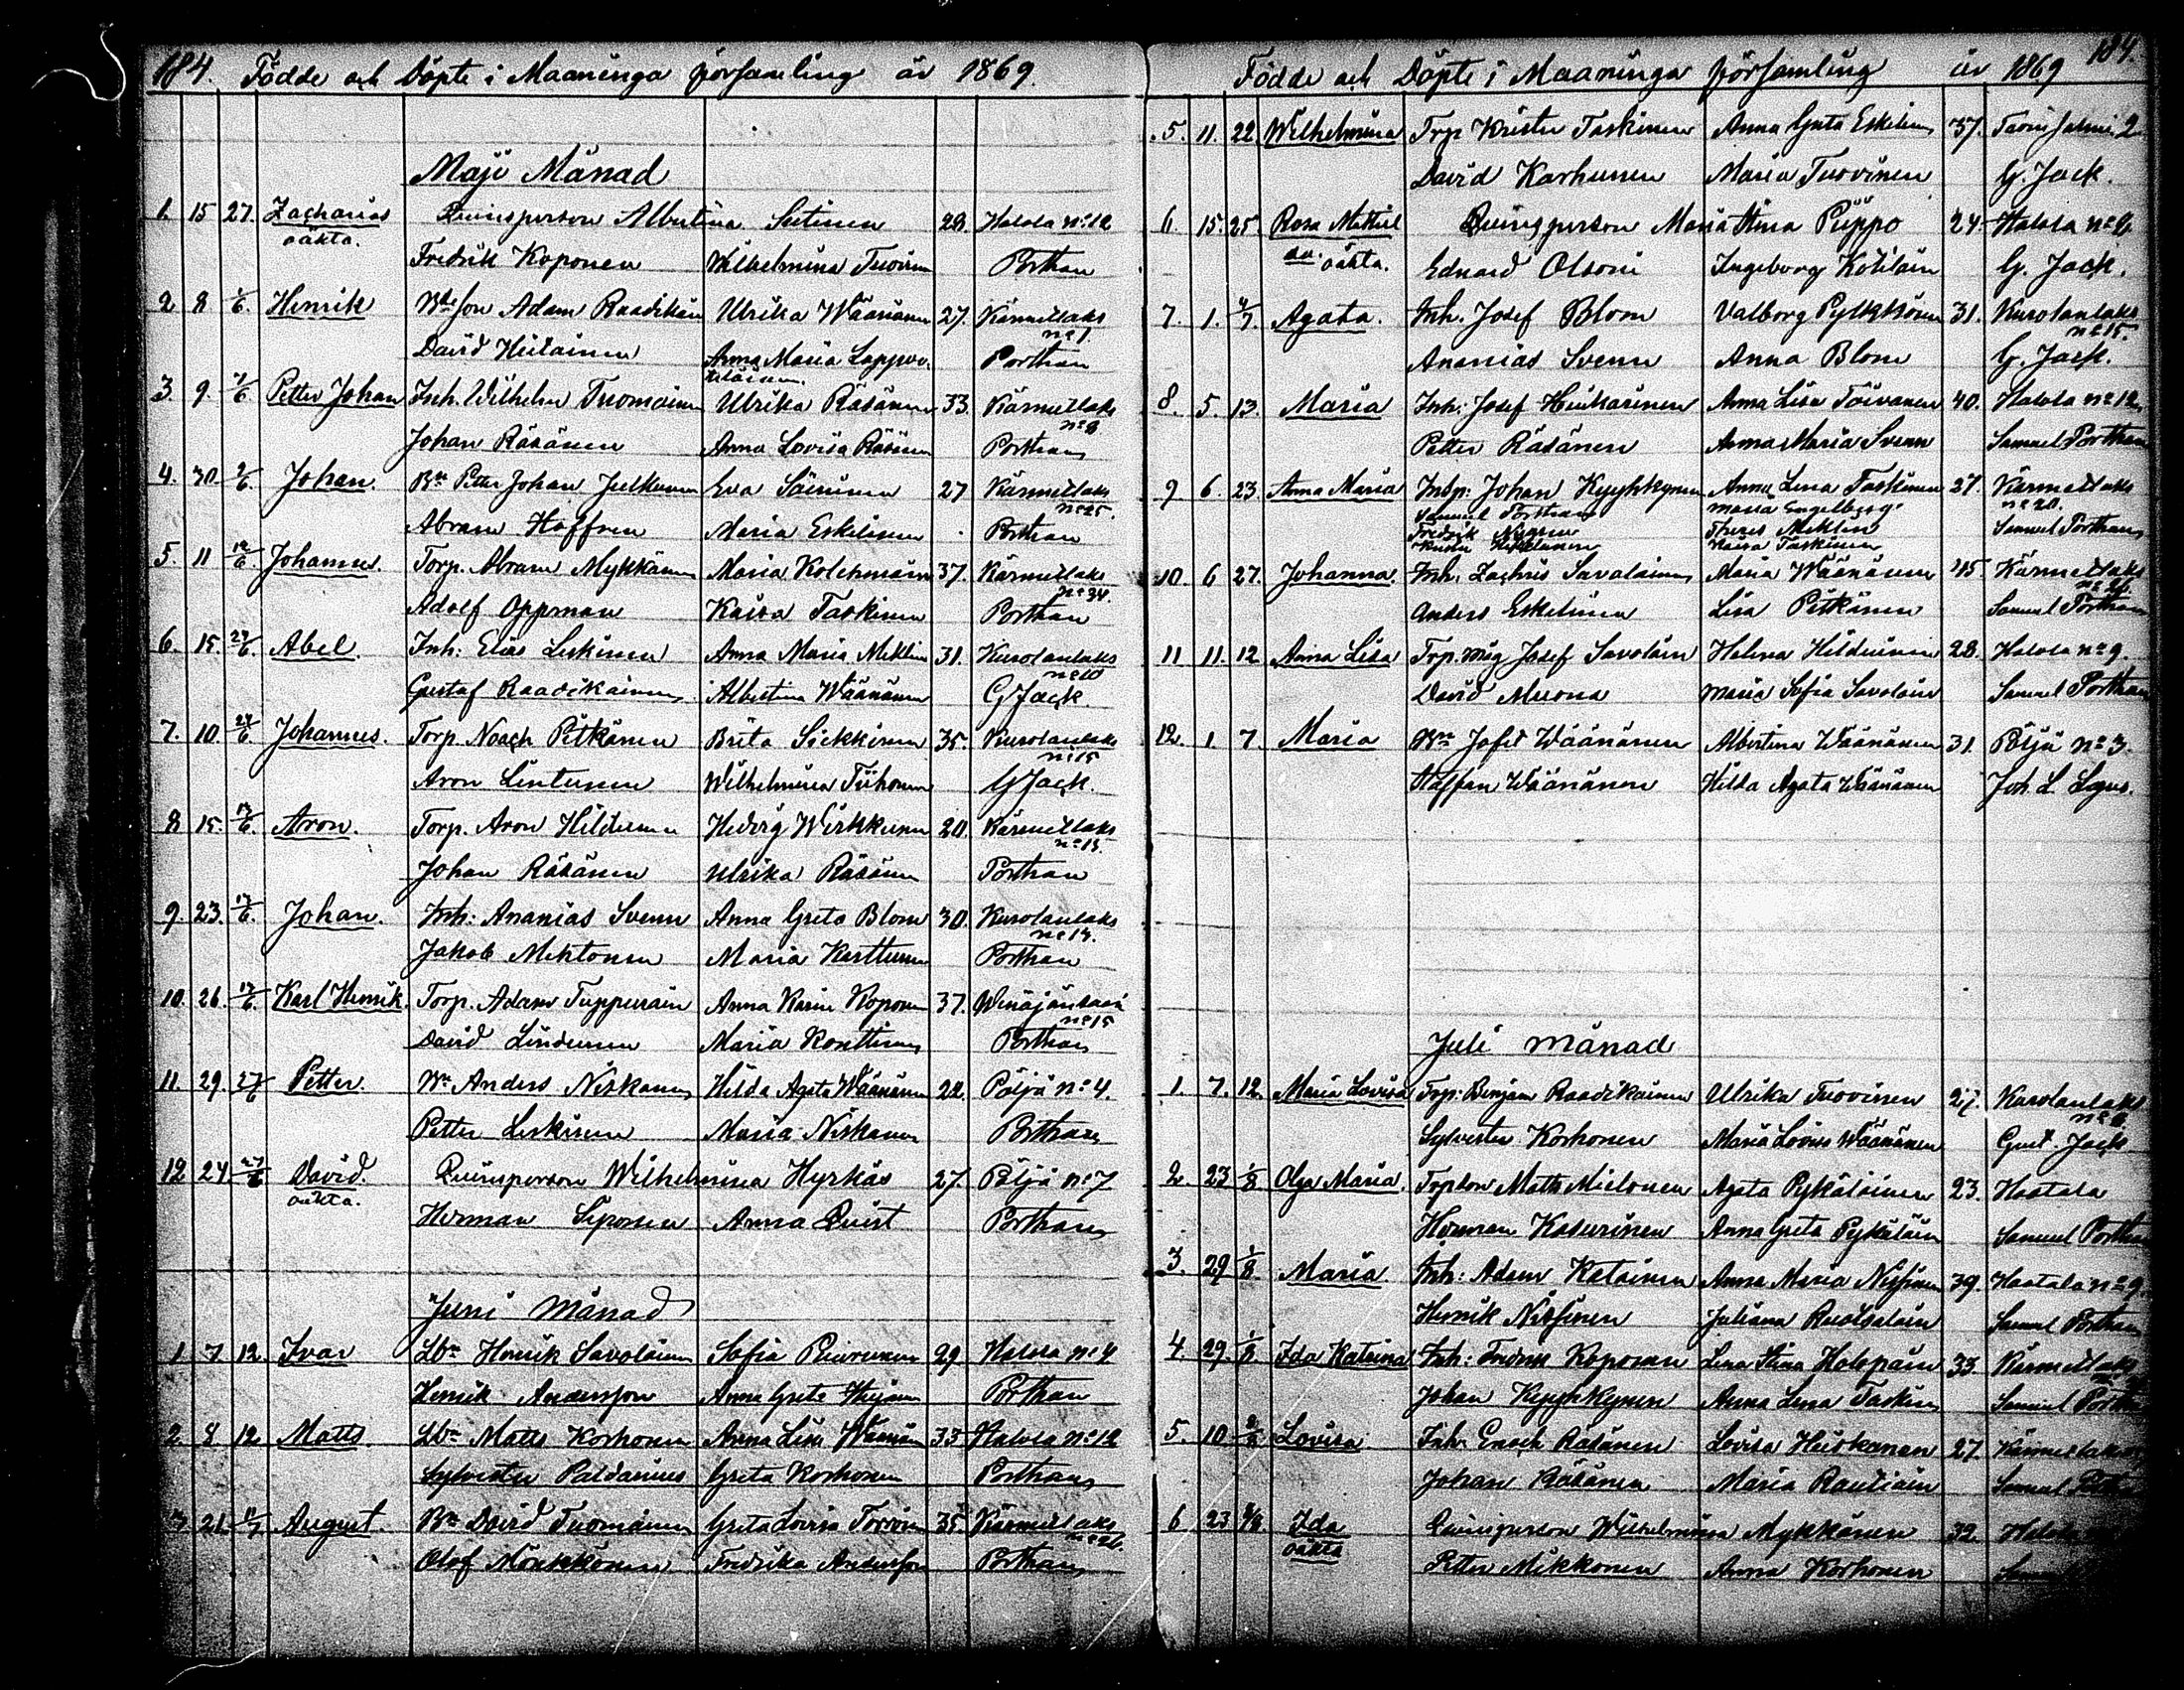 184. Födde och Döpte i Maaninga församling år 1869.
Maji Månad
1. 15 27. Zacharias Qvinsperson Albertina Sutinen 28. Halola no 12
oäkta. Fredrik Koponen Wilhelmina Tuovinen Porthan
2 8 1/6. Henrik Bdeson Adam Raadikain Ulrika Wäänänen 27. Kärmetlaks no 1.
David Hiltainen Anna Maria Lappve Porthan
3. 9. 2/6 Petter Johan Inh. Wilhelm Tuomainen Ulrika Räsänen 33. Kärmetlaks no 8
Johan Räsänen Anna Lovisa Räsänen Porthan
4. 30. 2/6. Johan. Bde Petter Johan Julkunen Eva Soininen 27 Kärmetlaks no 25.
Abram Hoffren Maria Eskelinen Porthan
5. 11 12/6. Johannes. Torp. Abram Mykkänen Maria Kolehmain 37. Kärmetlaks no 34.
Adolf Oppman Kaisa Taskinen Porthan
6. 15. 27/6. Abel. Inh: Elias Leskinen Anna Maria Miklin 31. Kurolanlaks no 10
Gustaf Raadikainen Albertina Wäänänen G Jack.
7. 10. 27/6 Johannes. Torp. Noach Pitkänen Brita Sickkinen 35. Kurolanlaks no 15
Aron Lintunen Wilhelmina Tiihonen G Jack.
8 15. 13/6. Aron. Torp. Aron Hiltunen Hedvig Wirkkunen 20. Kärmetlaks no 13.
Johan Räsänen Ulrika Räsänen Porthan
9. 23. 13/6. Johan. Inh: Ananias Svenn Anna Greta Blom 30. Kurolanlaks no 14.
Jakob Miktonen Maria Karttunen Porthan
10. 26. 13/6. Karl Henrik. Torp. Adam Tuppurain Anna Karin Koponen 37. Winäjänsaari no 15
David Lindunen Maria Konttinen Porthan
11. 29. 27/6 Petter. Bn Anders Niskanen Hilda Agata Wäänänen 22. Pöljä no 4.
Petter Leskinen Maria Niskanen Porthan
12 24 27/6 David. Qvinsperson Wilhelmina Hyrkäs 27. Pöljä no 7
oäkta. Herman Siponen Anna Qvist Porthan
Juni Månad
1 7 12 Ivar Lbn Henrik Savolainen Sofia Puurunen 29 Halola no 4
Henrik Andersson Anna Greta Porthan
2. 8. 12 Matts. Lbn Matts Korhonen Anna Lisa Wäänän 33 Halola no 12
Sylvester Paldanius Greta Korhonen Porthan
3 21. 11/7 August. Bn David Tuomainen Greta Lovisa 35. Kärmetlaks no 26.
Olof Mönkkönen Fredrika Andersson Porthan
184.
Födde och Döpte i Maaninga församling år 1869
5. 11. 22. Wilhelmina Trp Krister Taskinen Anna Greta Eskelinen 37. 2
David Karhunen Maria Tuovinen G. Jack.
6. 15. 25 Rosa Mathil Qvinsperson Maria Stina Piippo 24. Halola no 6
oäkta. Eduard Olsoni Ingeborg Kotilain G. Jack.
7. 1. 4/7. Agata. Inh. Josef Blom Valborg Pylkkönen 31. Kurolanlaks no 15.
Ananias Svenn Anna Blom G. Jack.
8. 5. 13. Maria Inh: Josef Heiskarinen Anna Lisa Toivanen 40. Halola no 12
Petter Räsänen Anna Maria Svenn Samuel Porthan
9 6. 23. Anna Maria Insp: Johan Kyyhkynen Anna Lena Taskinen 27. Kärmetlaks no 20.
Samuel Porthan Maria Engelberg
Fredrik Nygren Theres Miklin Samuel Porthan
Krister Kaisa Taskinen
10. 6 27. Johanna. Inh. Zachris Savolainen Maria Wäänänen 45. Kärmetlaks no 26.
Anders Eskelinen Lisa Pitkänen Samuel Porthan
11 11. 12 Anna Lisa Trp. måg Josef Savolain Helena Hiltunen 28. Halola no 9.
David Muona Maria Sofia Savolain Samuel Porthan
12. 1. 7. Maria Bn Jafet Wäänänen Albertina Wäänänen 31. Pöljä no 3.
Staffan Wäänänen Hilda Agata Wäänänen Joh. L. Lagus.
Juli Månad
1. 7. 12. Maria Lovisa Torp: Benjam Raadikainen Ulrika Tuovinen 27. Kurolanlaks no 8.
Sylvester Korhonen Maria Lovisa Wäänänen Gust. Jack
2 23 1/8 Olga Maria. Trpson Matts Mielonen Agata Pykäläinen 23. Haatala
Herman Kasurinen Anna Greta Pykäläin Samuel Porthan
3. 29 1/8. Maria Inh: Adam Katainen Anna Maria Nissinen 39. Haatala no 9.
Henrik Nissinen Juliana Ruotsalain Samuel Porthan
4. 29. 1/8. Ida Katrina Inh: Fredrik Koponen Lena Stina Holopain 33. Kärmetlaks
Johan Kyyhkynen Anna Lena Taskinen Samuel Porthan
5. 10 2/8 Lovisa Inh. Enoch Räsänen Lovisa Heiskanen 27. Kärmetlaks
Johan Räsänen Maria Rautiain Samuel
6 23 8/8 Ida Qvinsperson Wilhelmina Mykkänen 32. Halola
oäkta Petter Mikkonen Anna Korhonen Samuel